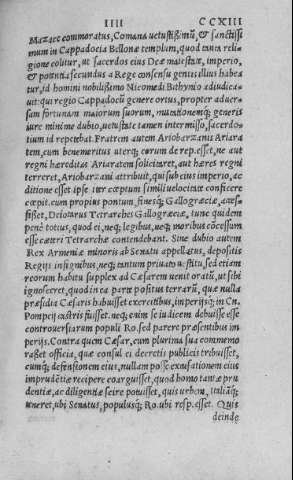 IIII CCXIII
Mazaec commoratus, Comana uetustißimũ, & sanctissi
mum in Cappadocia Bellonæ templum, quod tanta reli-
gione colitur, ut sacerdos eius Deæ maiestate, imperio,
& potentia secundus a Rege consensu gentis illius habea
tur, id homini nobilißimo Nicomedi Bithynio adiudica-
uit: qui regio Cappadocũ genere ortus, propter aduer-
sam fortunam maiorum suorum, mutationemq; generis
iure minime dubio, uetustate tamen intermisso, sacerdo-
tium id repetebat. Fratrem autem Ariobarzanis Ariara
tem, cum bonemeritus uterq; eorum de rep. esset, ne aut
regni hæreditas Ariaratem solicitaret, aut hæres regni
terreret, Ariobarzani attribuit, qui sub eius imperio, ac
ditione esset ipse iter cœptum simili uelocitate conficere
cœpit. cum propius pontum, finesq; Gallogræciæ, acces-
sißet, Deiotarus Tetrarches Gallogræciæ, tunc quidem
penè totius, quod ei, neq; legibus, neq; moribus cōcessum
esse cæteri Tetrarchæ contendebant. Sine dubio autem
Rex Armeniæ minoris ab Senatu appellatus, depositis
Regijs insignibus, neq; tantum priuato uestitu, sed etiam
reorum habitu supplex ad Cæsarem uenit oratũ, ut sibi
ignosceret, quod in ea parte positus terrarũ, quæ nulla
præsidia Cæsaris habuisset exercitibus, imperijsq; in Cn.
Pompeij castris fuisset. neq; enim se iudicem debuisse esse
controuersiarum populi Ro. sed parere præsentibus im
perijs. Contra quem Cæsar, cum plurima sua commemo
raßet officia, quæ consul ei decretis publicis tribuisset,
cumq; defensionem eius, nullam posse excusationem eius
imprudētiæ recipere coarguisset, quod homo tantæ pru
dentiæ, ac diligentiæ scire potuisset, quis urbem, Italiāq;
teneret, ubi Senatus, populusq; Ro. ubi resp. esset. Quis
deinde